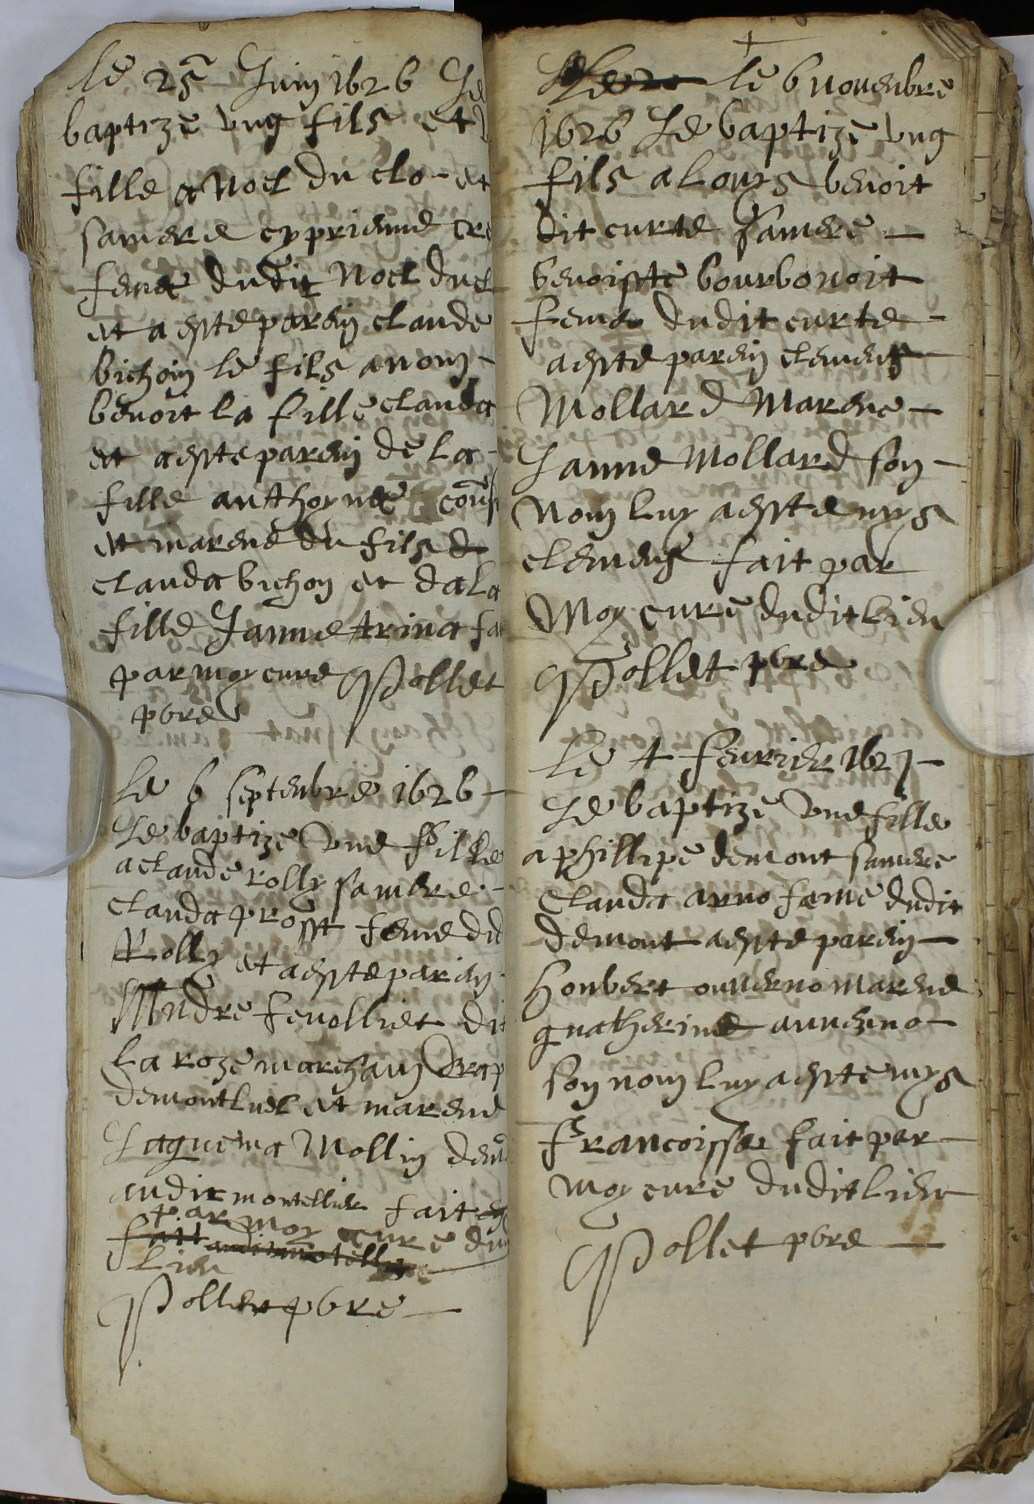 le 25 Juin 1626 Je
baptizé ung fils et
fille a Noel du clo et
sa mere cypriemme
feme dudit Noel du cl
et a este parain claude
bichon le fils a nom
benoit la fille clauda
et a este parain de la
fille anthoyne
et maraine du fils
clauda bichon et da la
fille Janne trina fa
par moy cure Pollet
pbre
Le 6 septenbre 1626
Je baptizé une fille
a claude rolly sa mere
clauda prost feme du
Rolly et a este parain
Andre fevolliet dit
La roze marchan drap
de montluel et maraine
Jaquema Mollin dem
audit montellier fait
par moy cure du
lieu
Pollet pbre
le 6 novenbre
1626 Je baptizé ung
fils a Louys benoit
dit curte sa mere
benoiste bourbonoit
feme dudit curte
a este parain clemens
Mollard Marene
Janne Mollard son
Nom luy a este mys
clemens fait par
Moy curé dudit lieu
Pollet pbre
le 4 fevrier 1627
Je baptizé une fille
a phillipe demont sa mere
clauda arno fame dudit
demont a este parain
honbert ouverno marene
quatherine auverno
son nom luy a este mys
francoisse fait par
moy curé dudit lieu
Pollet pbre